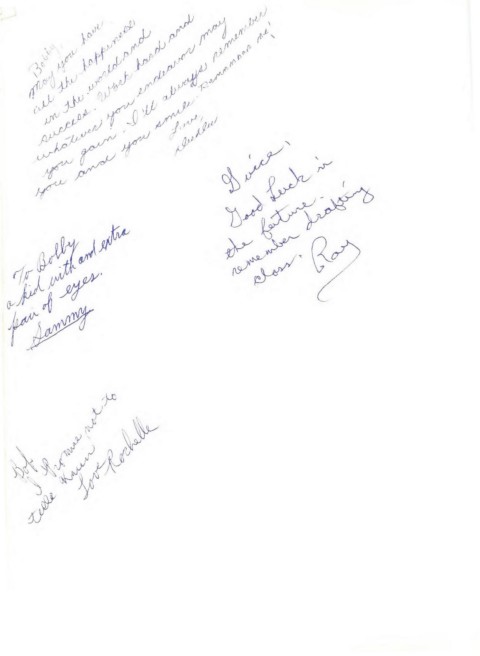 Bobby,
May you have
all the happiness
in the world and
success. Work hard and
whatever you endeavor may
you gain. I'll always remember
you and you smile. Remember me!
Love,
Guice,
Good Luck in
the feture.
remember drafting
class. Ray
To Bobby
a kid with am extra
pair of eyes.
Sammy
I Promise not to
tell Karen
Love Rochelle